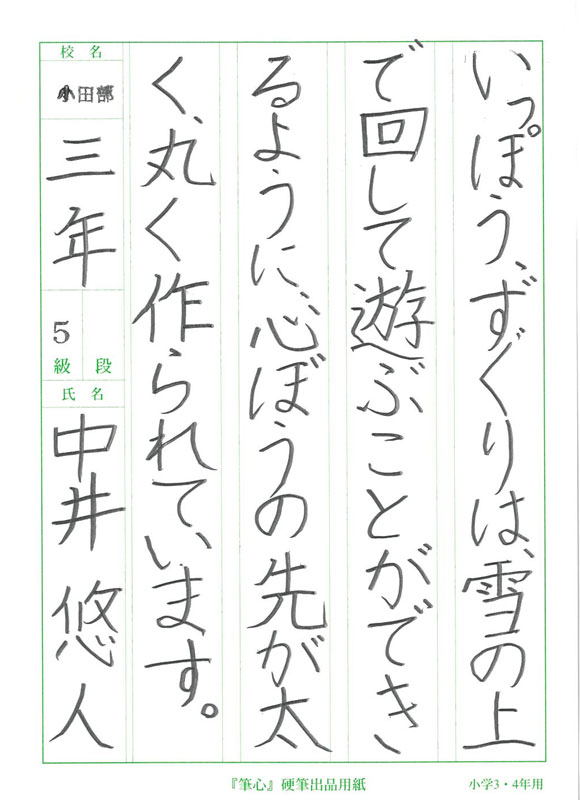 いっぽう、ずぐりは、雪の上
で回して遊ぶことができ
るように、心ぼうの先が太
く、丸く作られています。
校名
小田部
三年
5
級 段
氏名
中井 悠人
『筆心』硬筆出品用紙
小学3・4年用